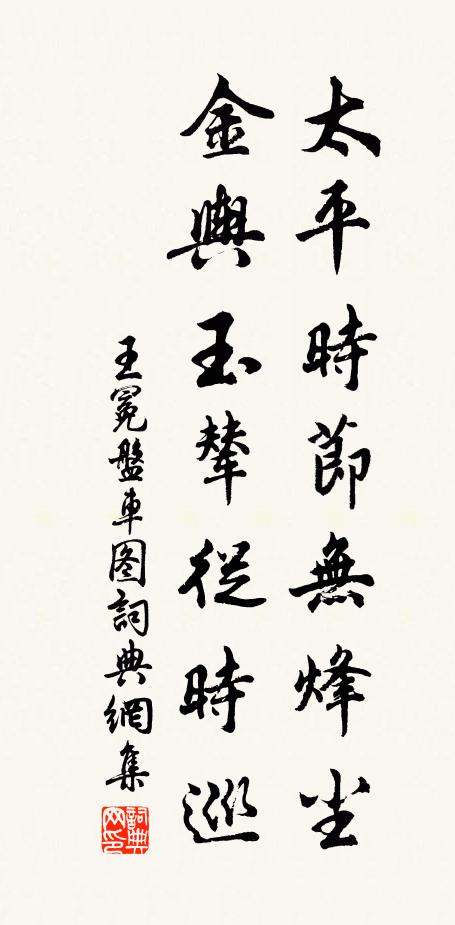 太平時節無烽尘
金輿玉輦從時巡
王冕盤車图詞典網集
詞典网印